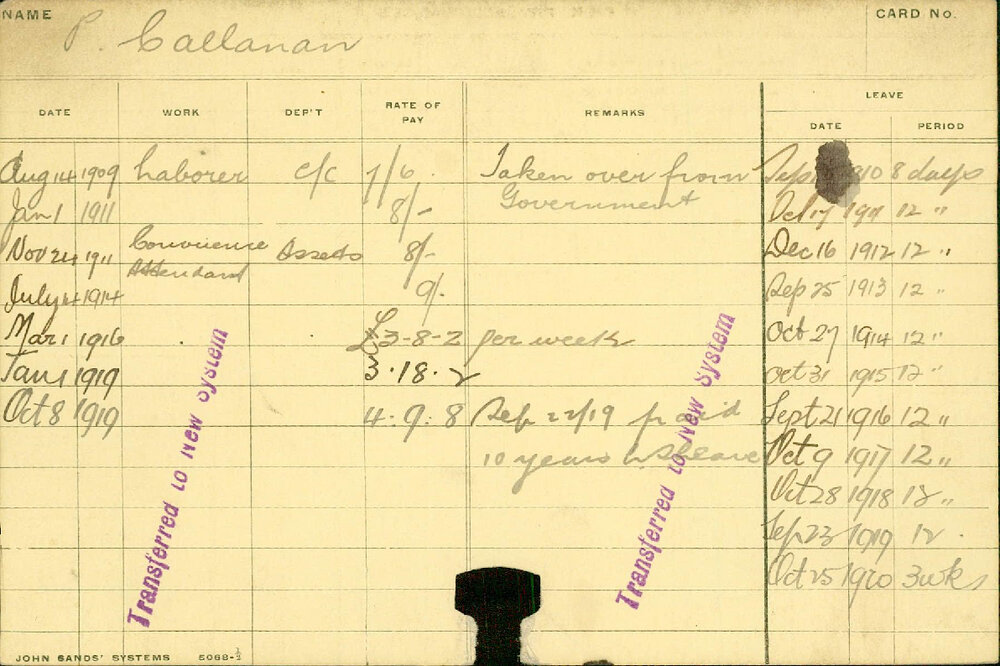 NAME P. Callanan CARD No.
LEAVE
DATE WORK DEP'T RATE OF PAY REMARKS DATE PERIOD
Aug 14 1909 Laborer C/C 7/6 Taken over from Sep 1910 8 days
Jan 1 1911 8/- Government Oct 17 1911 12 "
Nov 24 1911 Convenience Attendant Assets 8/- Dec 16 1912 12 "
July 4 1914 9/- Sep 25 1913 12 "
Mar 1 1916 £3-8-2 per week Oct 27 1914 12 "
Jan 1 1919 3.18.2 Oct 31 1915 12 "
Oct 8 1919 4.9.8 Sep 22/19 paid Sept 21 1916 12 "
10 years leave Oct 9 1917 12 "
Oct 28 1918 12 "
Sep 23 1919 12
Oct 25 1920 3 wks
Transferred to New System
Transferred to New System
JOHN SANDS' SYSTEMS 5068-½